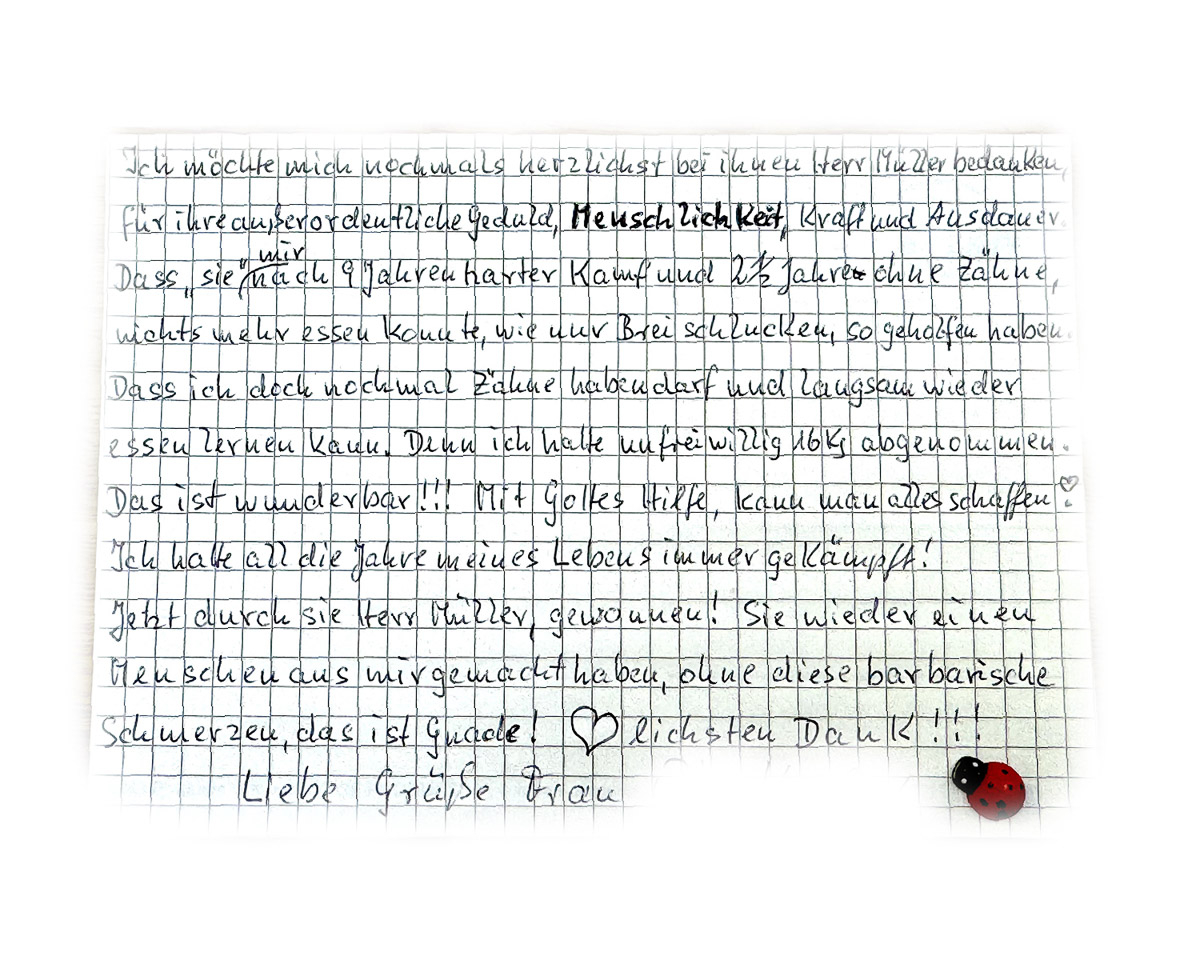 Ich möchte mich nochmals herzlichst bei ihnen Herr Müller bedanken,
für ihre außerordentliche Geduld, Menschlichkeit, Kraft und Ausdauer.
Dass „sie“ mir nach 9 Jahren harter Kamf und 2½ Jahre ohne Zähne,
nichts mehr essen konnte, wie nur Brei schlucken, so geholfen haben.
Dass ich doch nochmal Zähne haben darf und langsam wieder
essen lernen kann. Denn ich hatte unfreiwillig 16 Kg abgenommen.
Das ist wunderbar!!! Mit Gottes Hilfe, kann man alles schaffen!
Ich hatte all die Jahre meines Lebens immer gekämpft!
Jetzt durch sie Herr Müller, gewonnen! Sie wieder einen
Menschen aus mir gemacht haben, ohne diese barbarische
Schmerzen, das ist Gnade! ♡lichsten Dank!!!
Liebe Grüße Frau